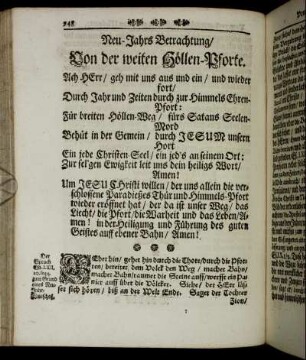 Neu-Jahrs Betrachtung/
Von der weiten Höllen-Pforte.
Ach HErr/ geh mit uns aus und ein/ und wieder
fort/
Durch Jahr und Zeiten durch zur Himmels Ehren-
Pfort:
Für breiten Höllen-Weg/ fürs Satans Seelen-
Mord
Behüt in der Gemein/ durch JESUM unsern
Hort
Ein jede Christen-Seel/ ein jed's an seinem Ort:
Zur sel'gen Ewigkeit leit uns dein heiligs Wort/
Amen!
Um JESU Christi willen/ der uns allein die ver-
schlossene Paradieses Thür und Himmels-Pfort
wieder eröffnet hat/ der da ist unser Weg/ das
Liecht/ die Pfort/ die Warheit und das Leben/ A-
men! in der Heiligung und Führung des guten
Geistes auff ebener Bahn/ Amen!
Der
Spruch
Gehet hin/ gehet hin durch die Thore/ durch die Pfor-
ten/ bereitet dem Volck den Weg/ machet Bahn/
machet Bahn/ raumet die Steine auff/ werffet ein Pa-
nier auff über die Völcker. Siehe/ der HErr läs-
set sich hören/ biß an der Welt Ende. Saget der Tochter
Zion/